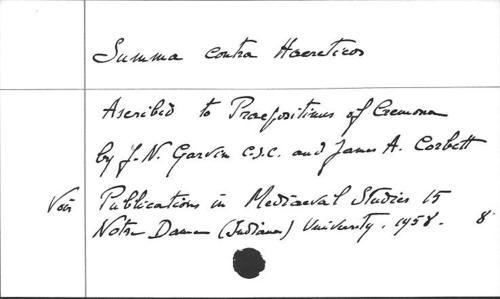 Summa contra Haereticos
Ascribed to Praepositinus of Cremona
by J.N. Garvin C.S.C. and James A. Corbett
Voir Publications in Mediaeval Studies 15
Notre Dame (Indiana) University. 1958. 8°